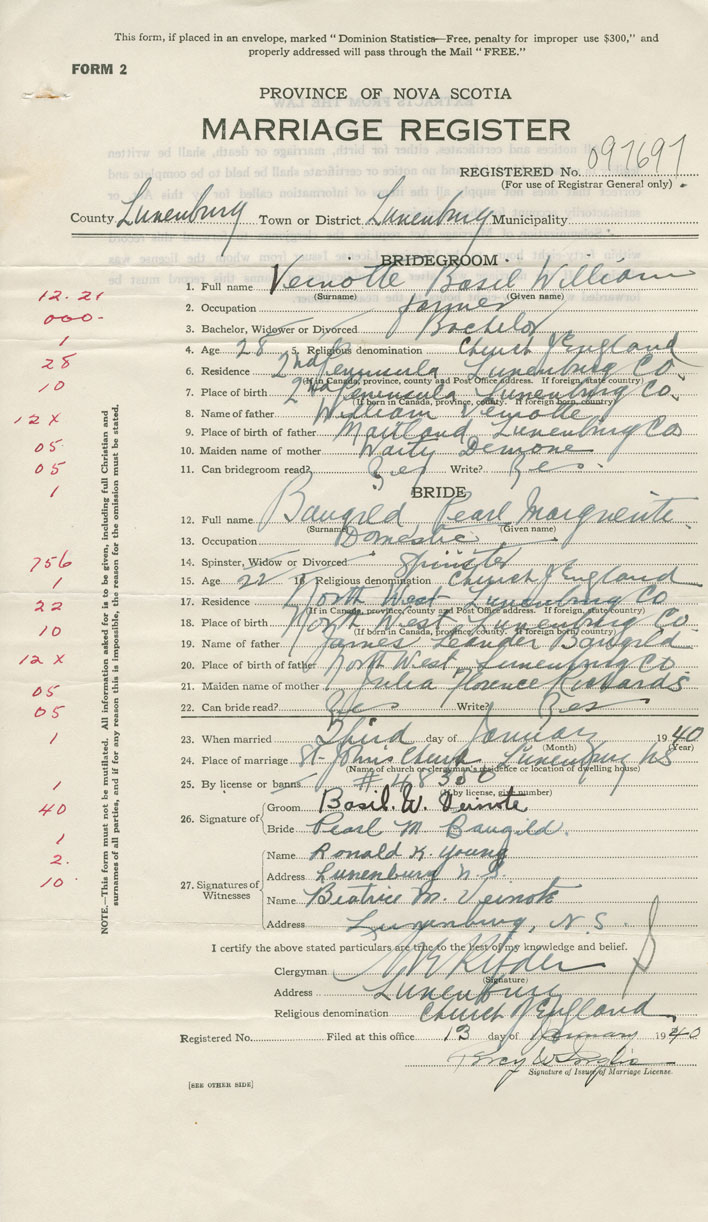 This form, if placed in an envelope, marked "Dominion Statistics—Free, penalty for improper use $300," and
properly addressed will pass through the Mail "FREE."
FORM 2
PROVINCE OF NOVA SCOTIA
MARRIAGE REGISTER
REGISTERED No. 097697
(For use of Registrar General only)
County Lunenburg Town or District Lunenburg Municipality
BRIDEGROOM
1. Full name Veinotte Basil William
(Surname) (Given name)
2. Occupation farmer
3. Bachelor, Widower or Divorced Bachelor
4. Age 28 5. Religious denomination Church of England
6. Residence 2nd Peninsula Lunenburg Co.
(If in Canada, province, county and Post Office address. If foreign, state country)
7. Place of birth 2nd Peninsula Lunenburg Co.
(If born in Canada, province, county. If foreign born, country)
8. Name of father William Veinotte
9. Place of birth of father Maitland Lunenburg Co
10. Maiden name of mother Waity Demone
11. Can bridegroom read? Yes Write? Yes
BRIDE
12. Full name Baugild Pearl Marguerite
(Surname) (Given name)
13. Occupation Domestic
14. Spinster, Widow or Divorced Spinster
15. Age 22 16. Religious denomination Church of England
17. Residence North West Lunenburg Co
(If in Canada, province, county and Post Office address. If foreign, state country)
18. Place of birth North West Lunenburg Co
(If born in Canada, province, county. If foreign born, country)
19. Name of father James Leander Baugild
20. Place of birth of father North West Lunenburg Co
21. Maiden name of mother Julia Florence Richards
22. Can bride read? Yes Write? Yes
23. When married Third day of January 1940
(Month) (Year)
24. Place of marriage St. John's Church Lunenburg NS
(Name of church or clergyman's residence or location of dwelling house)
25. By license or banns # 48350
(If by license, give number)
26. Signature of
Groom Basil. W. Veinote
Bride Pearl M. Baugild.
27. Signatures of Witnesses
Name Ronald K. Young
Address Lunenburg N.S.
Name Beatrice M. Veinott
Address Lunenburg, N.S.
I certify the above stated particulars are true to the best of my knowledge and belief.
Clergyman Ryder
(Signature)
Address Lunenburg
Religious denomination Church of England
Registered No. Filed at this office 13 day of January 1940
Percy W
Signature of Issuer of Marriage License.
[SEE OTHER SIDE]
NOTE.—This form must not be mutilated. All information asked for is to be given, including full Christian and
surnames of all parties, and if for any reason this is impossible, the reason for the omission must be stated.
12.21
000-
1
28
10
12 X
05
05
1
756
1
22
10
12 X
05
05
1
1
40
1
2.
10